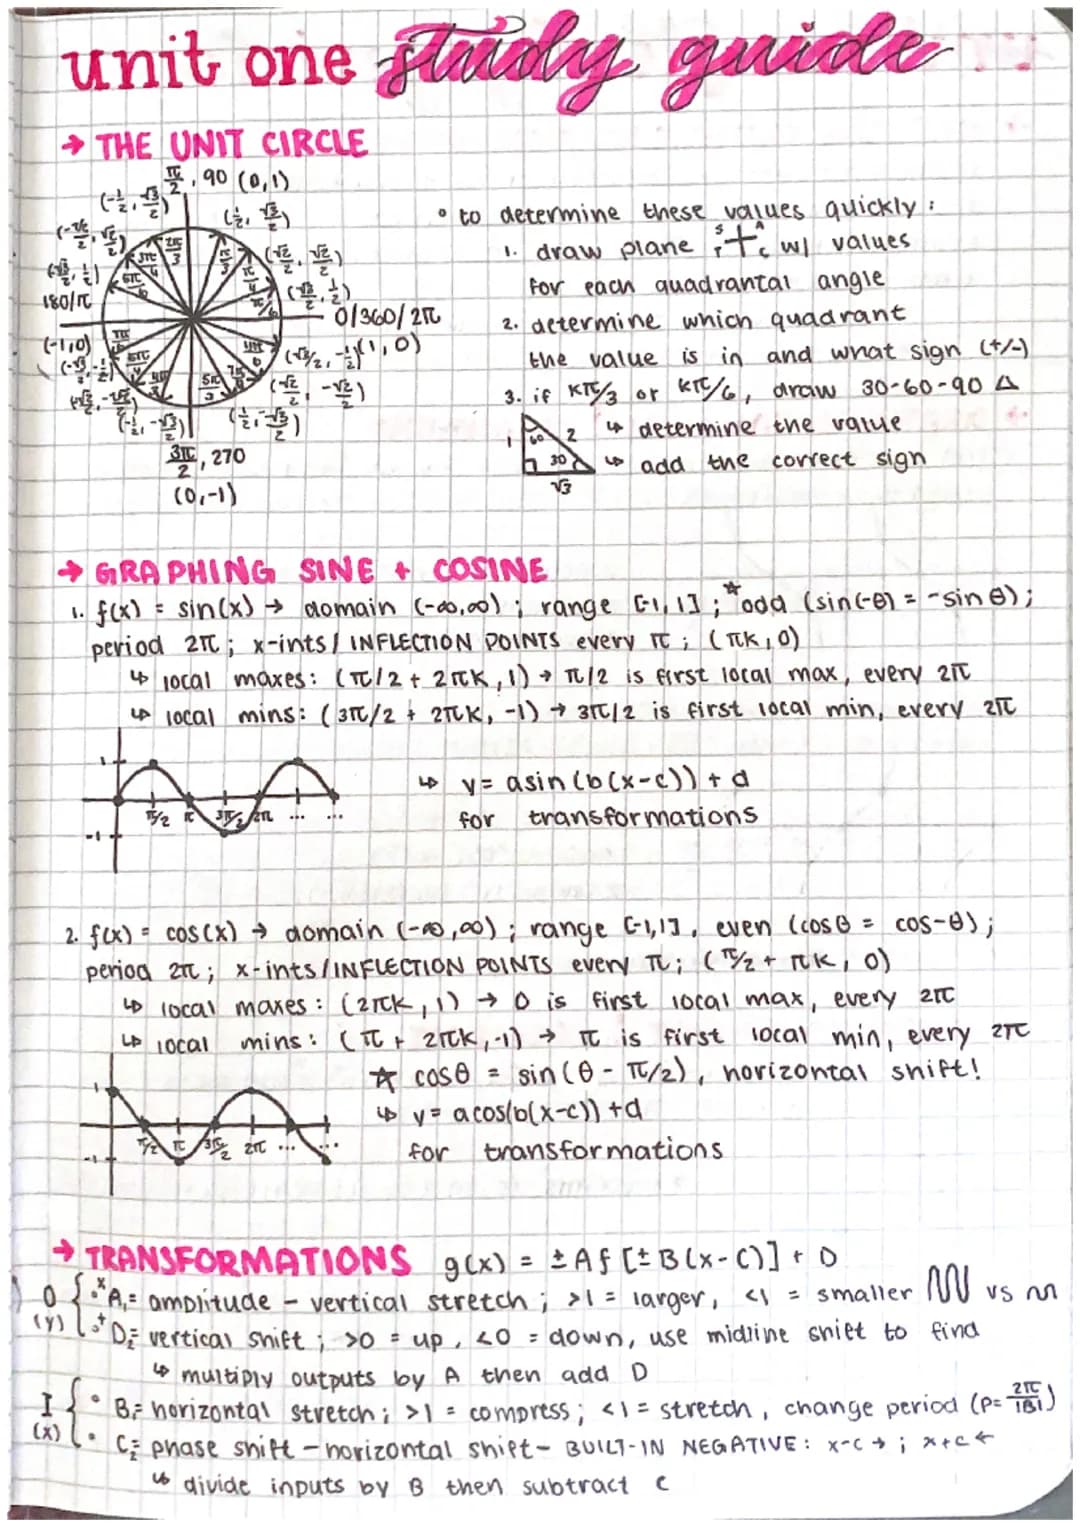 unit one study guide
→ THE UNIT CIRCLE
π/2, 90 (0,1)
(-1/2, √3/2)
(1/2, √3/2)
(-√2/2, √2/2)
(√2/2, √2/2)
(-√3/2, 1/2)
(√3/2, 1/2)
2π/3
3π/4
5π/6
π/3
π/4
π/6
180/π
0/360/2π
(-1,0)
(1,0)
7π/6
5π/4
4π/3
5π/3
(-√3/2, -1/2)
(√3/2, -1/2)
(-√2/2, -√2/2)
(√2/2, -√2/2)
(-1/2, -√3/2)
(1/2, -√3/2)
3π/2, 270
(0,-1)
° to determine these values quickly:
1. draw plane S A T C w/ values
for each quadrantal angle
2. determine which quadrant
the value is in and what sign (+/-)
3. if kπ/3 or kπ/6, draw 30-60-90 △
↳ determine the value
↳ add the correct sign
1 60 2
30
√3
→ GRAPHING SINE + COSINE
1. f(x) = sin(x) → domain (-∞,∞); range [-1,1]; *odd (sin(-θ) = -sin θ);
period 2π; x-ints/ INFLECTION POINTS every π; (πk, 0)
↳ local maxes: (π/2 + 2πk, 1) → π/2 is first local max, every 2π
↳ local mins: (3π/2 + 2πk, -1) → 3π/2 is first local min, every 2π
1
π/2 π 3π/2 2π ... ...
-1
↳ y= asin(b(x-c)) + d
for transformations
2. f(x) = cos(x) → domain (-∞,∞); range [-1,1], even (cosθ = cos-θ);
period 2π; x-ints/INFLECTION POINTS every π; (π/2 + πk, 0)
↳ local maxes: (2πk, 1) → 0 is first local max, every 2π
↳ local mins: (π + 2πk, -1) → π is first local min, every 2π
☆ cosθ = sin(θ - π/2), horizontal shift!
↳ y= acos(b(x-c)) +d
for transformations
1
π/2 π 3π/2 2π ... ...
-1
→ TRANSFORMATIONS g(x) = ±Af[±B(x-C)] + D
O (y) { • x A, = amplitude - vertical stretch; >1 = larger, <1 = smaller vs
• + D; = vertical shift; >0 = up, <0 = down, use midline shift to find
↳ multiply outputs by A then add D
I (x) { • B, = horizontal stretch; >1 = compress; <1 = stretch, change period (p= 2π/|B|)
• C; = phase shift - horizontal shift - BUILT-IN NEGATIVE: x-c → ; x+c ←
↳ divide inputs by B then subtract c